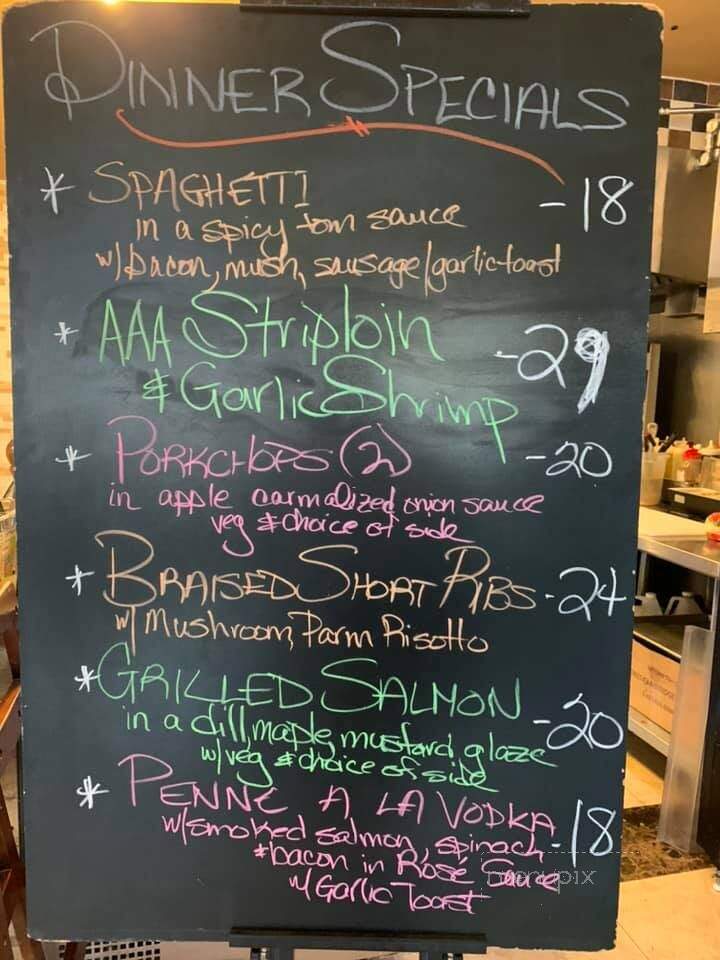 DINNER SPECIALS
* SPAGHETTI -18
in a spicy tom sauce
w/bacon, mush, sausage/garlic toast
* AAA Striploin -29
& Garlic Shrimp
* PORKCHOPS (2) -20
in apple carmalized onion sauce
veg & choice of side
* BRAISED SHORT RIBS -24
w/ Mushroom, Parm Risotto
* GRILLED SALMON -20
in a dill, maple, mustard glaze
w/veg & choice of side
* PENNE A LA VODKA -18
w/smoked salmon, spinach
& bacon in Rosé Sauce
w/ Garlic Toast
menupix